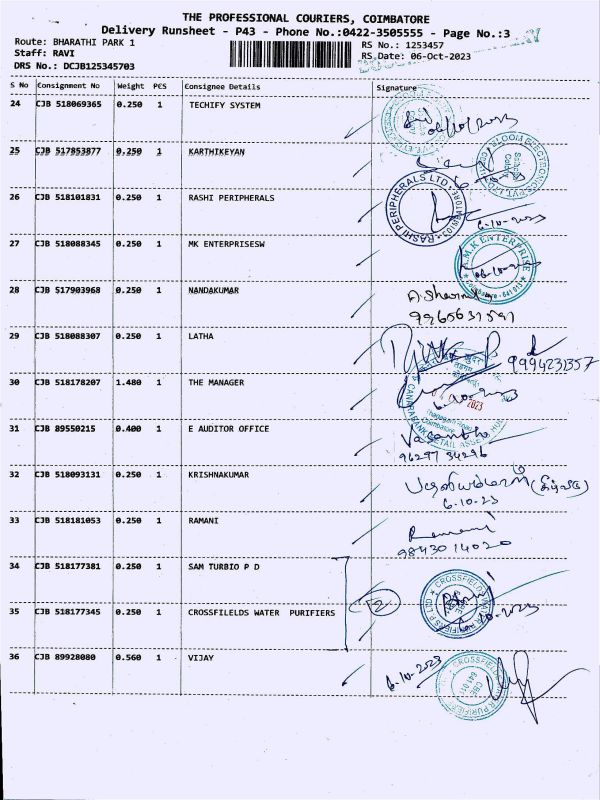 THE PROFESSIONAL COURIERS, COIMBATORE
Delivery Runsheet - P43 - Phone No.:0422-3505555 - Page No.:3
Route: BHARATHI PARK 1
RS No.: 1253457
Staff: RAVI
RS.Date: 06-Oct-2023
DRS No.: DCJB125345703
S No Consignment No Weight PCS Consignee Details Signature
24 CJB 518069365 0.250 1 TECHIFY SYSTEM
06/10/2023
25 CJB 517853877 0.250 1 KARTHIKEYAN
BLOOM ELECTRONICS PVT. LTD
26 CJB 518101831 0.250 1 RASHI PERIPHERALS
RASHI PERIPHERALS LTD
6-10-2023
27 CJB 518088345 0.250 1 MK ENTERPRISESW
M.K ENTERPRISE
28 CJB 517903968 0.250 1 NANDAKUMAR
9965631591
29 CJB 518088307 0.250 1 LATHA
9994231357
30 CJB 518178207 1.480 1 THE MANAGER
2023
31 CJB 89550215 0.400 1 E AUDITOR OFFICE
Vasantha
9629734296
32 CJB 518093131 0.250 1 KRISHNAKUMAR
6-10-23
33 CJB 518181053 0.250 1 RAMANI
Ramani
9843014020
34 CJB 518177381 0.250 1 SAM TURBIO P D
35 CJB 518177345 0.250 1 CROSSFILELDS WATER PURIFIERS
CROSSFIELDS WATER PURIFIERS P LTD
6-10-2023
36 CJB 89928080 0.560 1 VIJAY
6-10-2023
CROSSFIELDS WATER PURIFIERS
CBE
641 011